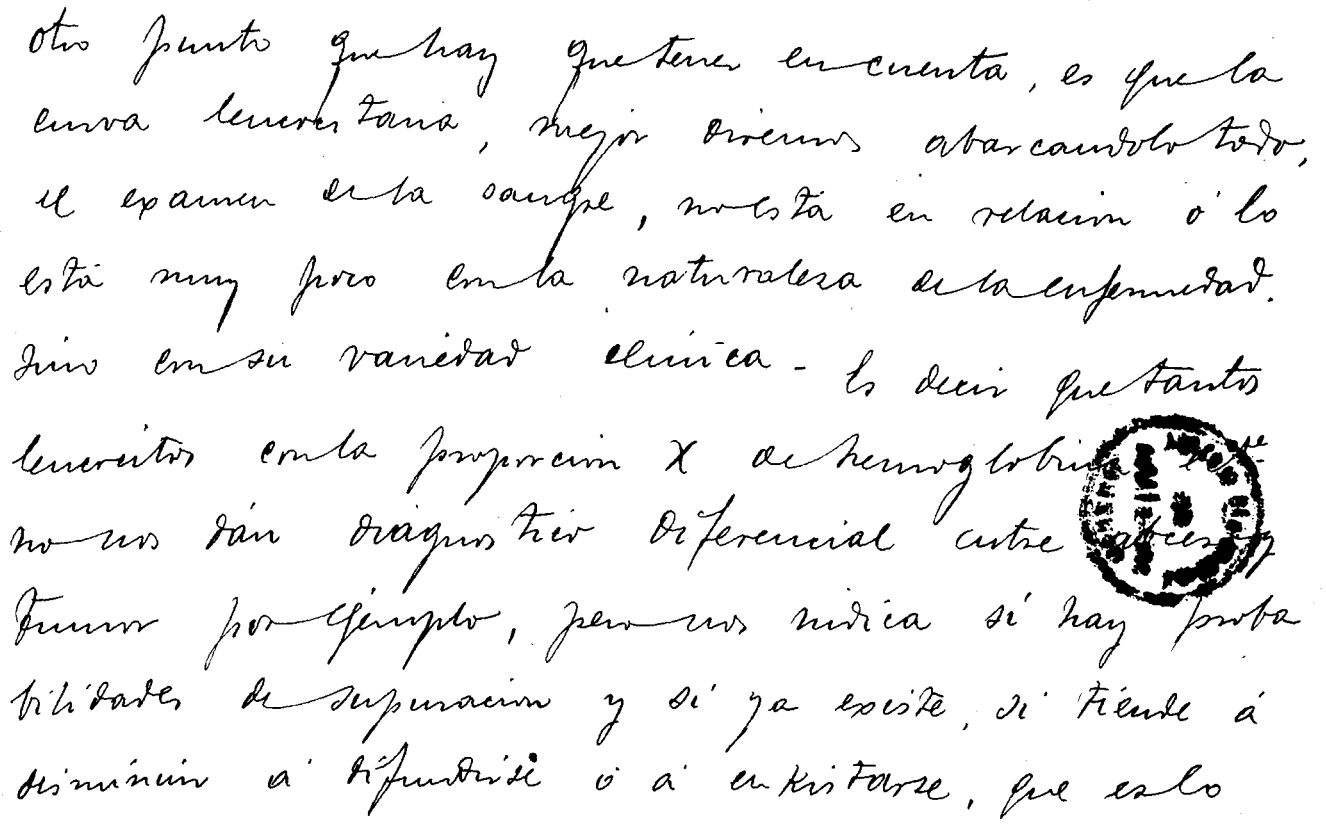 otro punto que hay que tener en cuenta, es que la
curva leucocitaria, mejor diremos abarcandolo todo,
el examen de la sangre, no está en relacion ó lo
está muy poco con la naturaleza de la enfermedad.
sino con su variedad clinica - Es decir que tantos
leucocitos con la proporcion X de hemoglobina
no nos dán diagnostico diferencial entre absceso y
tumor por ejemplo, pero nos indica sí hay proba
bilidades de supuracion y sí ya existe, si tiende á
disminuir á difundirse ó á enkistarse, que es lo